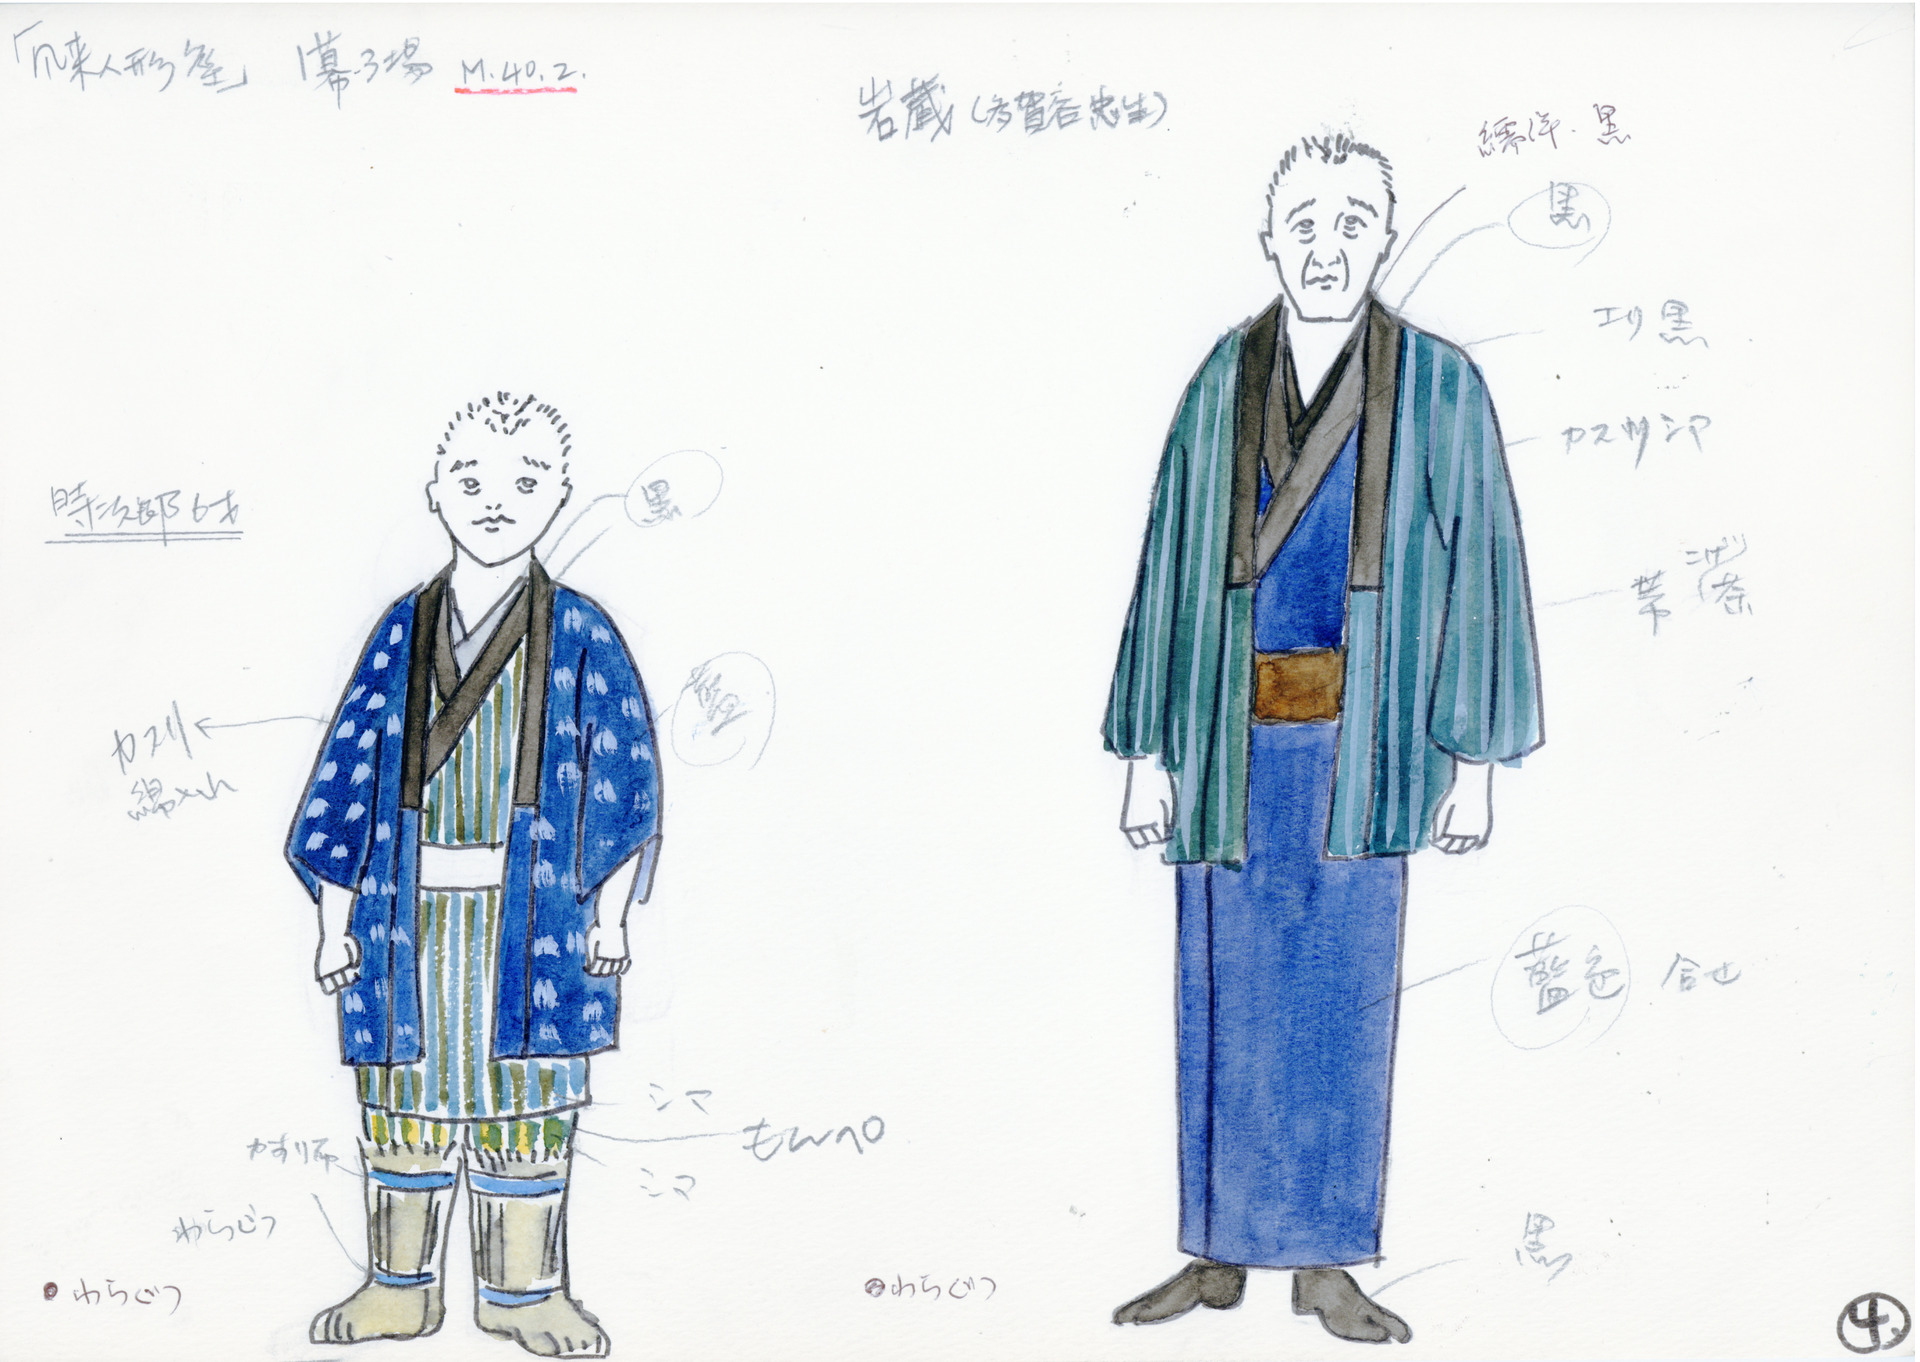 人形屋」 1幕3場 M.40.2.
岩蔵(多賀谷忠生)
襦袢・黒
黒
エリ黒
カスリシマ
帯 こげ茶
藍色 合せ
黒
わらじつ
時次郎6才
黒
カスリ
綿入れ
シマ
もんペ
シマ
かすり布
わらぐつ
わらぐつ
4